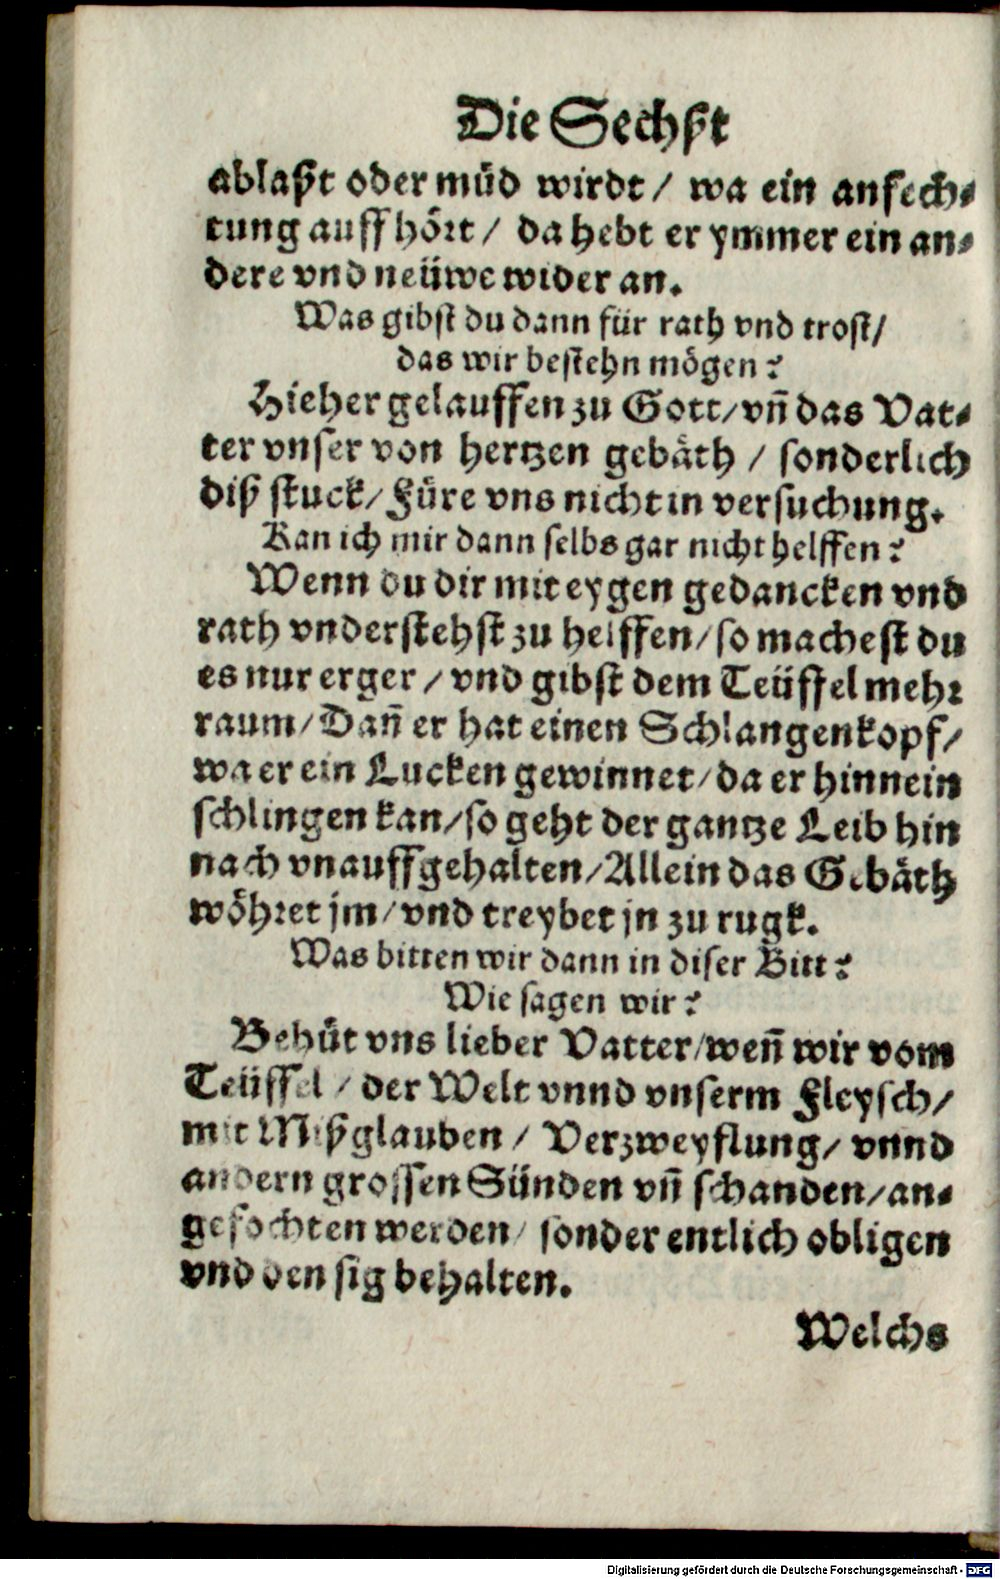 Die Sechßt
ablaßt oder müd wirdt / wa ein anfech⸗
tung auff hört / da hebt er ymmer ein an⸗
dere vnd neüwe wider an.
Was gibst du dann für rath vnd trost /
das wir bestehn mögen?
Hieher gelauffen zu Gott / vñ das Vat⸗
ter vnser von hertzen gebäth / sonderlich
diß stuck / Füre vns nicht in versuchung.
Kan ich mir dann selbs gar nicht helffen?
Wenn du dir mit eygen gedancken vnd
rath vnderstehst zu helffen / so machest du
es nur erger / vnd gibst dem Teüffel mehr
raum / Dañ er hat einen Schlangenkopf /
wa er ein Lucken gewinnet / da er hinnein
schlingen kan / so geht der gantze Leib hin
nach vnauffgehalten / Allein das Gebäth
wöhret jm / vnd treybet jn zu rugk.
Was bitten wir dann in diser Bitt?
Wie sagen wir?
Behüt vns lieber Vatter / weñ wir vom
Teüffel / der Welt vnnd vnserm Fleysch /
mit Mißglauben / Verzweyflung / vnnd
andern grossen Sünden vñ schanden / an⸗
gefochten werden / sonder entlich obligen
vnd den sig behalten.
Welchs
Digitalisierung gefördert durch die Deutsche Forschungsgemeinschaft - DFG